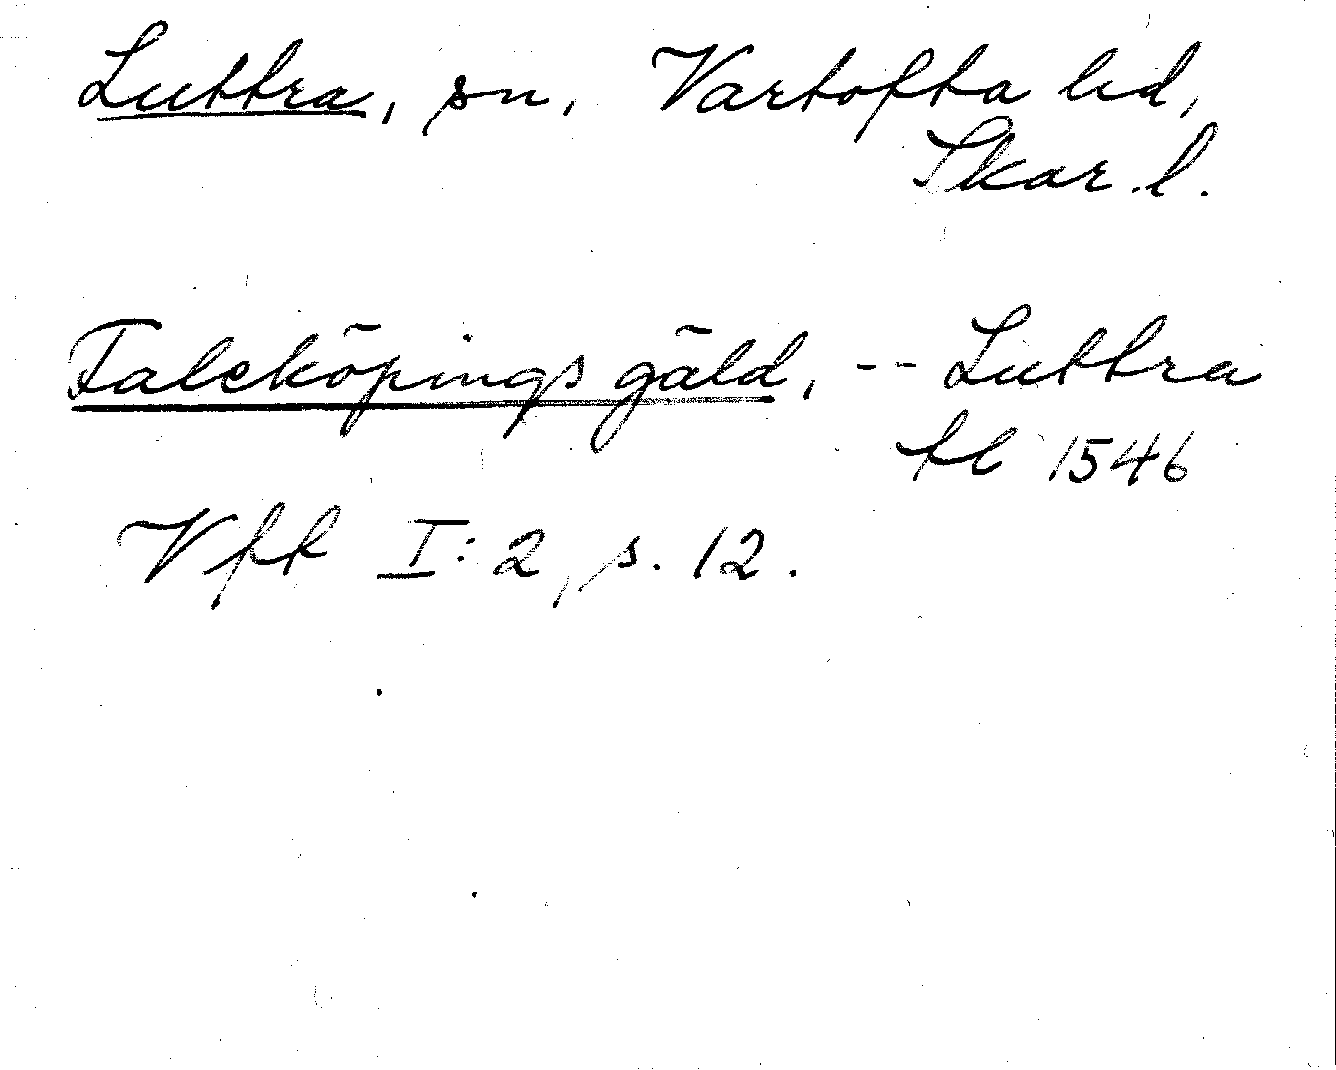 Luttra, sn, Vartofta hd,
Skar. l.
Faleköpings gäld, -- Luttra
kl 1546
Vfk I:2, s. 12.